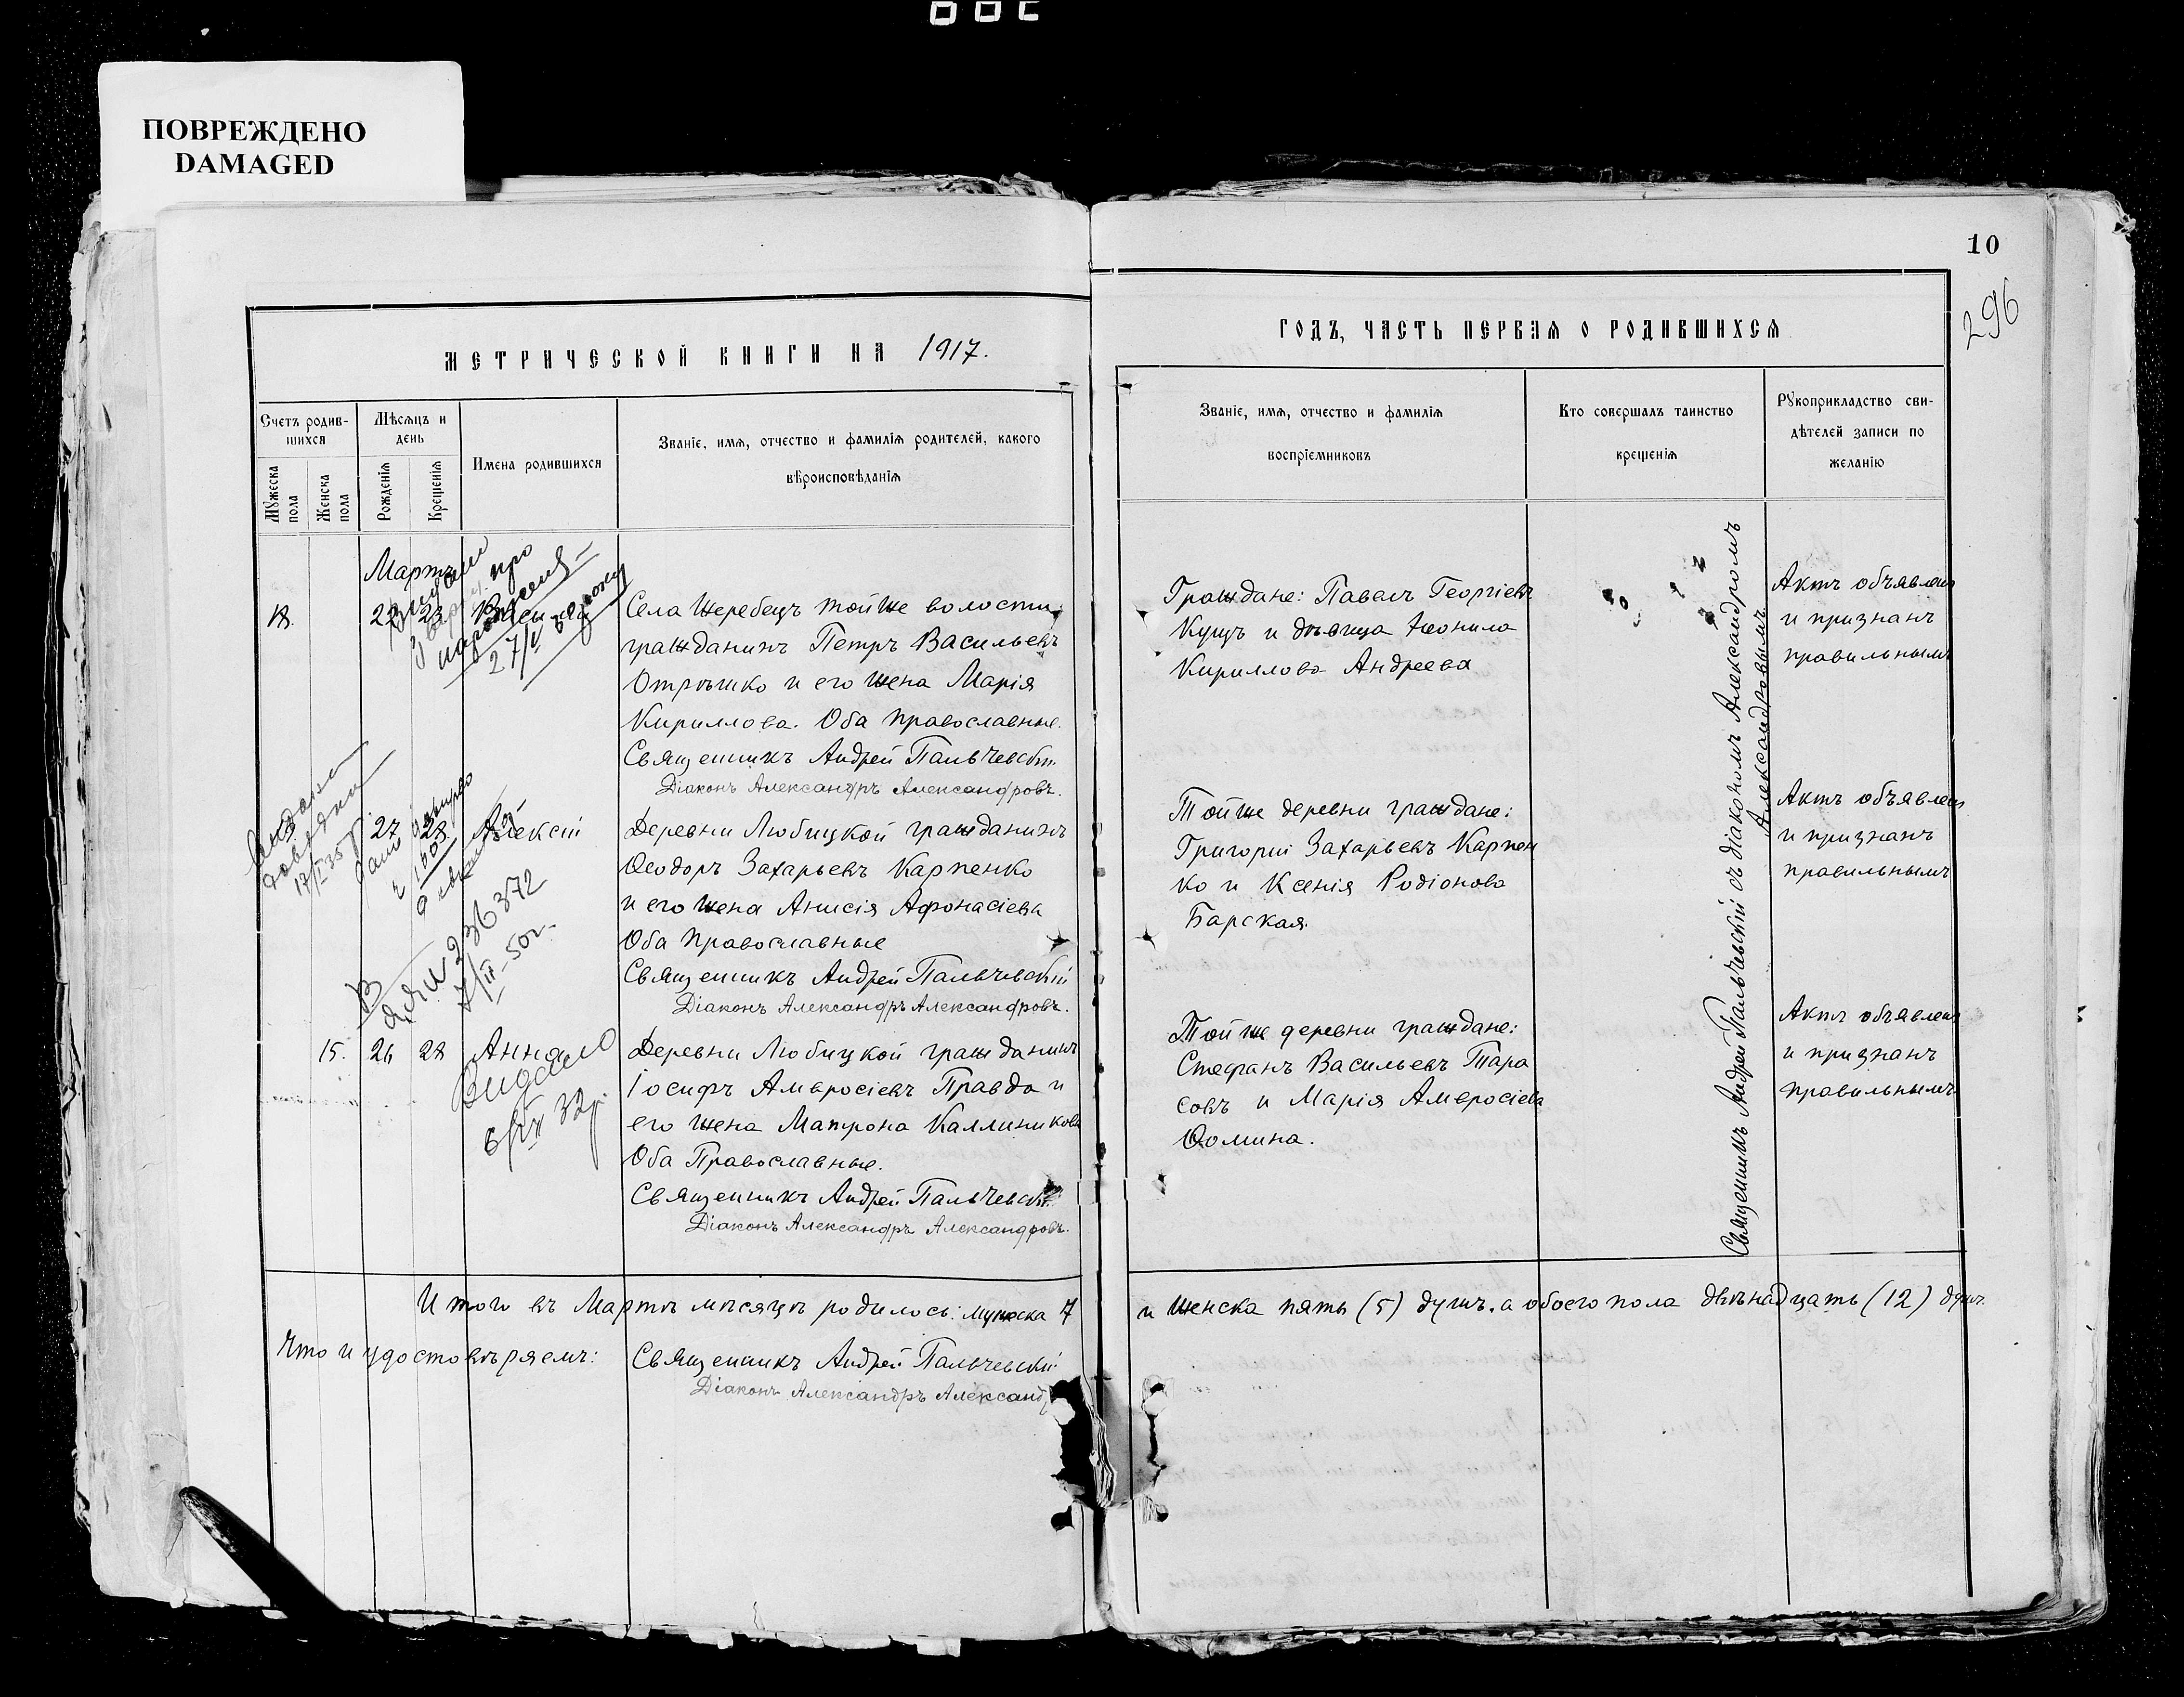 ПОВРЕЖДЕНО
DAMAGED
МЕТРИЧЕСКОЙ КНИГИ НА 1917.
Счетъ родив-
шихся
Мѣсяцъ и
день
Мужеска
пола
Женска
пола
Рожденія
Крещенія
Имена родившихся
Званіе, имя, отчество и фамилія родителей, какого
вѣроисповѣданія
Мартъ
22 23
27/V
Села Жеребецъ той же волости
гражданинъ Петръ Васильевъ
Отрѣшко и его жена Марія
Кириллова. Оба православные.
Священникъ Андрей Пальчевскій
Діаконъ Александръ Александровъ.
27 28 Алексій
Деревни Любицкой гражданинъ
Ѳеодоръ Захарьевъ Карпенко
и его жена Анисія Афонасіева
Оба православные
Священникъ Андрей Пальчевскій
Діаконъ Александръ Александровъ.
236372
7/II-50г.
15. 26 28 Анна
Видано
32р.
Деревни Любицкой гражданинъ
Іосифъ Амвросіевъ Правда и
его жена Матрона Каллиникова
Оба Православные.
Священникъ Андрей Пальчевскій
Діаконъ Александръ Александровъ.
Итого въ Мартѣ мѣсяцѣ родилось: мужеска 7
Что и удостовѣряемъ:
Священникъ Андрей Пальчевскій
Діаконъ Александръ Александ
10
296
ГОДЪ, ЧАСТЬ ПЕРВАЯ О РОДИВШИХСЯ
Званіе, имя, отчество и фамилія
воспріемниковъ
Кто совершалъ таинство
крещенія
Рукоприкладство сви-
дѣтелей записи по
желанію
Граждане: Павелъ Георгіевъ
Кущъ и дѣвица Неонила
Кириллова Андреева
Актъ объявленъ
и признанъ
правильнымъ
Той же деревни граждане:
Григорій Захарьевъ Карпен
ко и Ксенія Родіонова
Барская.
Актъ объявленъ
и признанъ
правильнымъ
Той же деревни граждане:
Стефанъ Васильевъ Тара
совъ и Марія Амвросіева
Ѳомина.
Актъ объявленъ
и признанъ
правильнымъ
Священникъ Андрей Пальчевскій съ діакономъ Александромъ
Александровымъ
и женска пять (5) душъ, а обоего пола двѣнадцать (12) душъ.